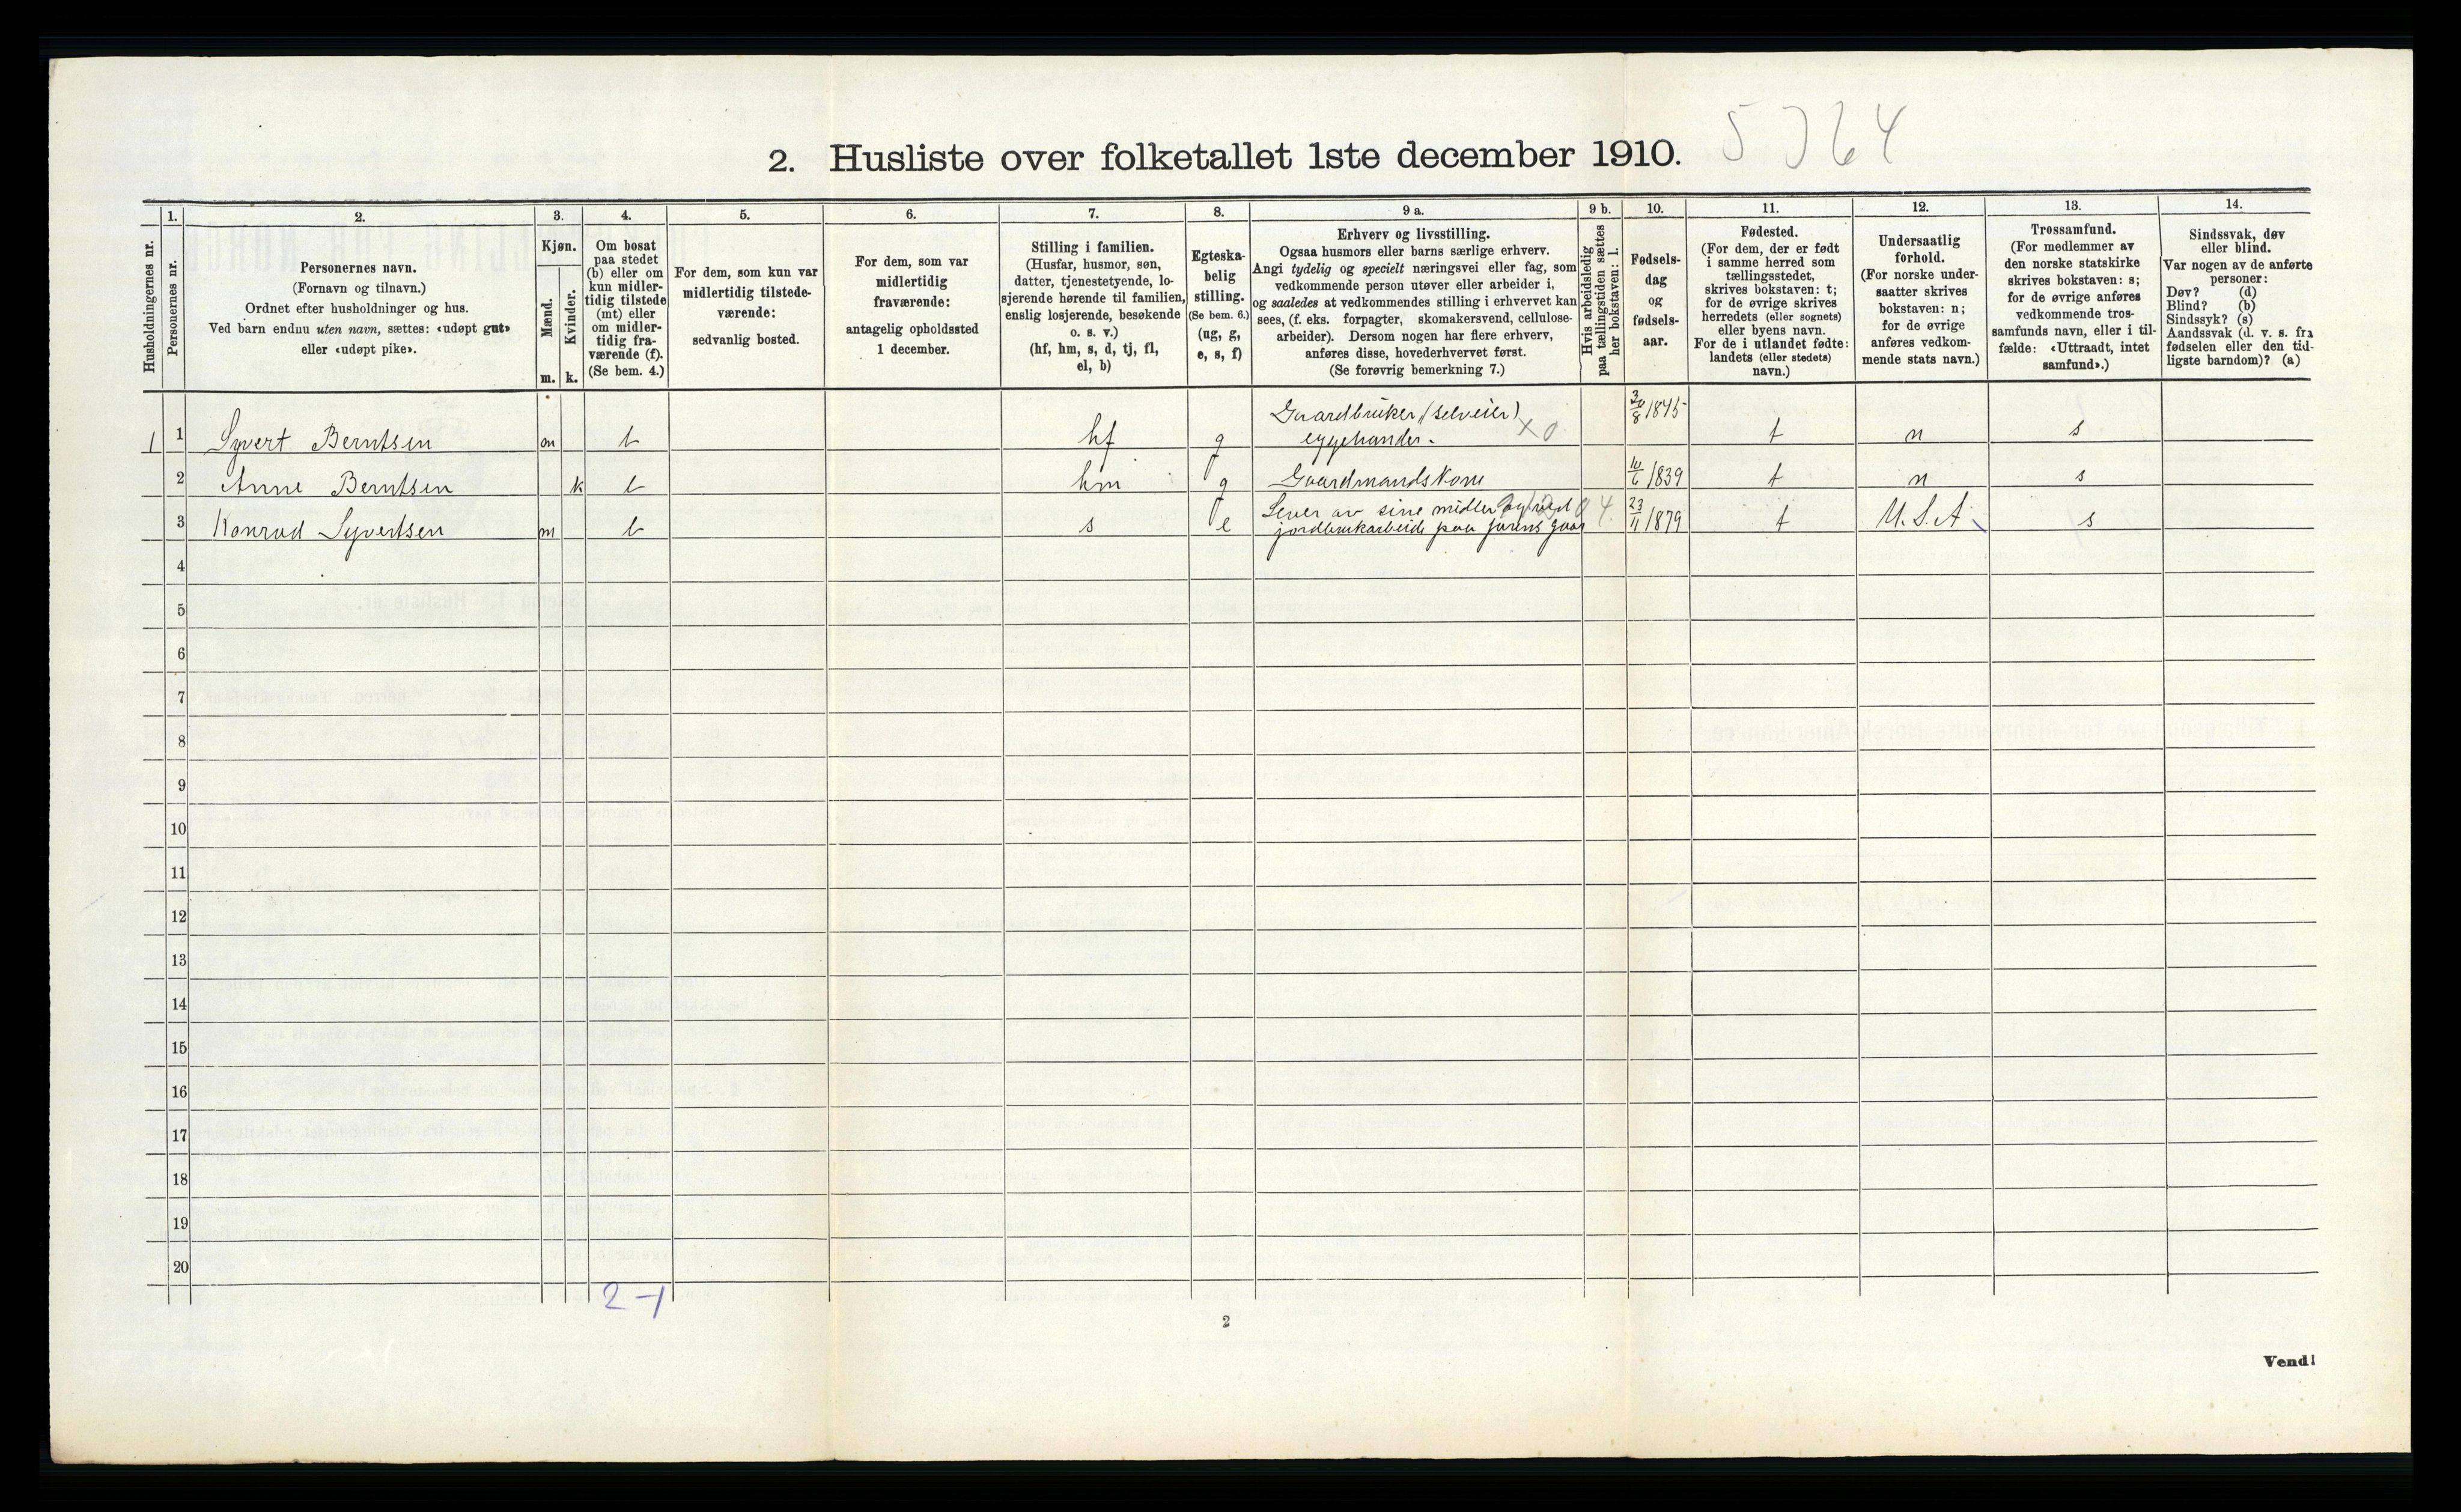 5764
2. Husliste over folketallet 1ste december 1910.
Husholdningernes nr.
1.
Personernes nr.
2.
Personernes navn.
(Fornavn og tilnavn.)
Ordnet efter husholdninger og hus.
Ved barn endnu uten navn, sættes: «udøpt gut»
eller «udøpt pike».
3.
Kjøn.
Mænd.
Kvinder.
m. k.
4.
Om bosat
paa stedet
(b) eller om
kun midler-
tidig tilstede
(mt) eller
om midler-
tidig fra-
værende (f).
(Se bem. 4.)
5.
For dem, som kun var
midlertidig tilstede-
værende:
sedvanlig bosted.
6.
For dem, som var
midlertidig
fraværende:
antagelig opholdssted
1 december.
7.
Stilling i familien.
(Husfar, husmor, søn,
datter, tjenestetyende, lo-
sjerende hørende til familien,
enslig losjerende, besøkende
o. s. v.)
(hf, hm, s, d, tj, fl,
el, b)
8.
Egteska-
belig
stilling.
(Se bem. 6.)
(ug, g,
e, s, f)
9 a.
Erhverv og livsstilling.
Ogsaa husmors eller barns særlige erhverv.
Angi tydelig og specielt næringsvei eller fag, som
vedkommende person utøver eller arbeider i,
og saaledes at vedkommendes stilling i erhvervet kan
sees, (f. eks. forpagter, skomakersvend, cellulose-
arbeider). Dersom nogen har flere erhverv,
anføres disse, hovederhvervet først.
(Se forøvrig bemerkning 7.)
9 b.
Hvis arbeidsledig
paa tællingstiden sættes
her bokstaven: l.
10.
Fødsels-
dag
og
fødsels-
aar.
11.
Fødested.
(For dem, der er født
i samme herred som
tællingsstedet,
skrives bokstaven: t;
for de øvrige skrives
herredets (eller sognets)
eller byens navn.
For de i utlandet fødte:
landets (eller stedets)
navn.)
12.
Undersaatlig
forhold.
(For norske under-
saatter skrives
bokstaven: n;
for de øvrige
anføres vedkom-
mende stats navn.)
13.
Trossamfund.
(For medlemmer av
den norske statskirke
skrives bokstaven: s;
for de øvrige anføres
vedkommende tros-
samfunds navn, eller i til-
fælde: «Uttraadt, intet
samfund».)
14.
Sindssvak, døv
eller blind.
Var nogen av de anførte
personer:
Døv? (d)
Blind? (b)
Sindssyk? (s)
Aandssvak (d. v. s. fra
fødselen eller den tid-
ligste barndom)? (a)
1 1 Syvert Berntsen m b hf g Gaardbruker (selveier) eggehandler. x0 /1845 t n s
2 Anne Berntsen k b hm g Gaardmandskone 10/6 1839 t n s
3 Konrad Syvertsen m b s e Lever av sine midler og ved jordbrukarbeide paa farens gaar 23/11 1879 t U.S.A s
4
5
6
7
8
9
10
11
12
13
14
15
16
17
18
19
20
2-1
2
Vend!